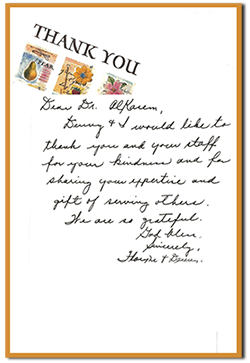 THANK YOU
PEAR
Dear Dr. AlKasem,
Denny & I would like to
thank you and your staff
for your kindness and for
sharing your expertise and
gift of serving others.
We are so grateful.
God bless.
Sincerely,
& Denny